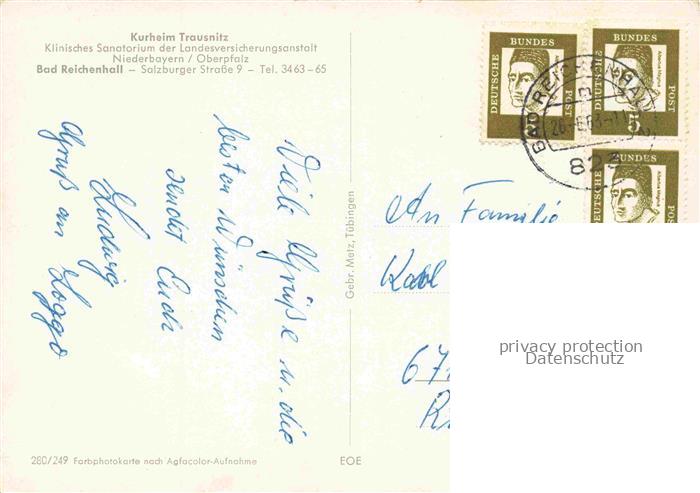 Kurheim Trausnitz
Klinisches Sanatorium der Landesversicherungsanstalt
Niederbayern / Oberpfalz
Bad Reichenhall – Salzburger Straße 9 – Tel. 3463–65
Viele Grüße u. die
besten Wünschen
sendet Euch
Ludwig
Gruß an
Gebr. Metz, Tübingen
280/249 Farbphotokarte nach Agfacolor-Aufnahme
EOE
DEUTSCHE BUNDES POST
DEUTSCHE BUNDES POST
5
Albertus Magnus
DEUTSCHE BUNDES POST
Albertus Magnus
BAD REICHENHALL
An Familie
67
privacy protection
Datenschutz